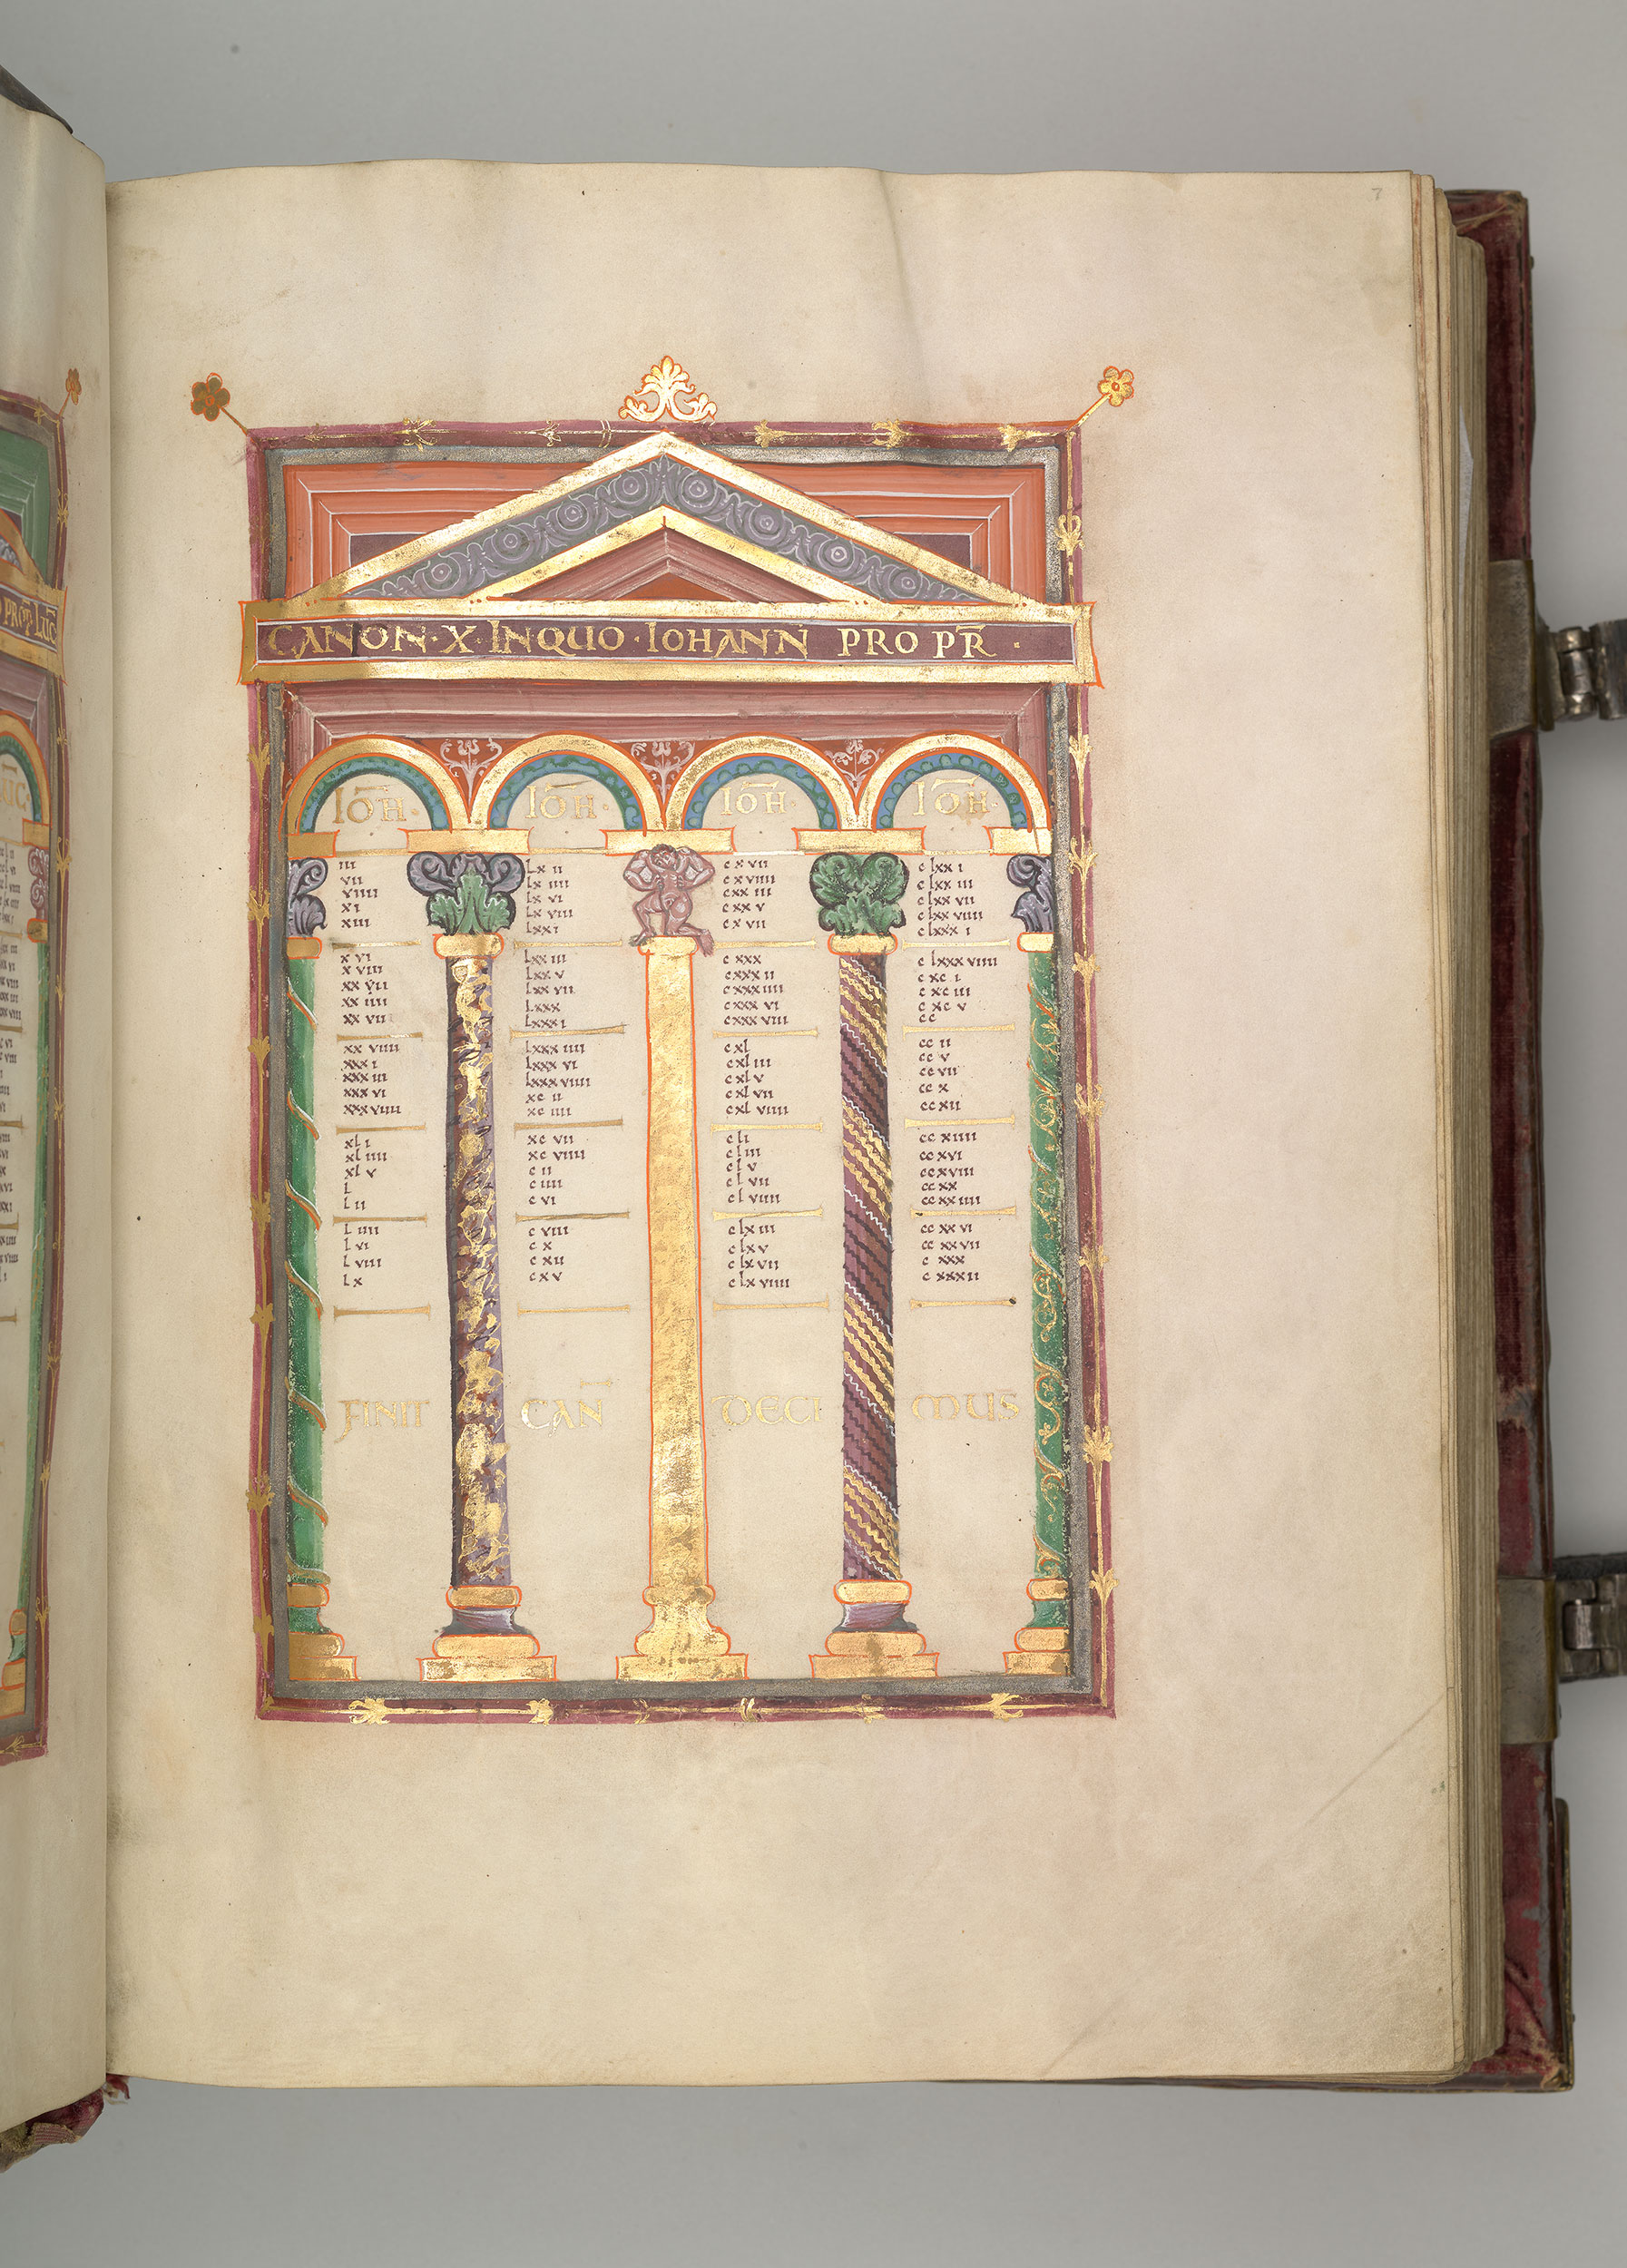 7
PROP̄ LUC̄
CANON · X · INQUO · IOHANN PRO PR̄ ·
IOH̄ · IOH̄ · IOH̄ · IOH̄ ·
iii
vii
viiii
xi
xiii
x vi
x viii
xx vii
xx iiii
xx vii
xx viiii
xxx i
xxx iii
xxx vi
xxx viiii
xl i
xl iiii
xl v
l
l ii
l iiii
l vi
l viii
lx
lx ii
lx iiii
lx vi
lx viii
lxx i
lxx iii
lxx v
lxx vii
lxxx
lxxx i
lxxx iiii
lxxx vi
lxxx viiii
xc ii
xc iiii
xc vii
xc viiii
c ii
c iiii
c vi
c viii
c x
c xii
c xv
c x vii
c x viiii
c xx iii
c xx v
c x vii
c xxx
c xxx ii
c xxx iiii
c xxx vi
c xxx viii
c xl
c xl iii
c xl v
c xl vii
c xl viiii
c l i
c l iii
c l v
c l vii
c l viiii
c lx iii
c lx v
c lx vii
c lx viiii
c lxx i
c lxx iii
c lxx vii
c lxx viiii
c lxxx i
c lxxx viiii
c xc i
c xc iii
c xc v
cc
cc ii
cc v
cc vii
cc x
cc xii
cc xiiii
cc xvi
cc xviii
cc xx
cc xx iiii
cc xx vi
cc xx vii
c xxx
c xxxii
FINIT CAN̄ DECI MUS